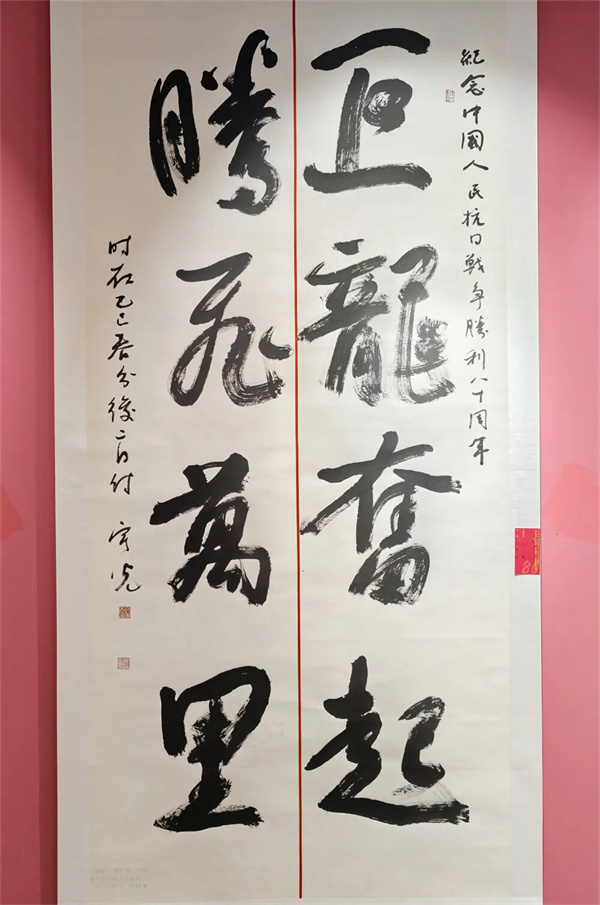 紀念中國人民抗日戰爭勝利八十周年
巨龍奮起
騰飛萬里
时在乙巳春分後